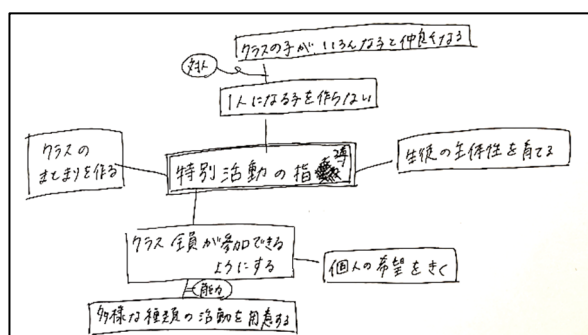 クラスの子が、いろんな子と仲良くなる
対人
1人になる子を作らない
クラスの
まとまりを作る
特別活動の指導
生徒の主体性を育てる
クラス全員が参加できる
ようにする
個人の希望をきく
能力
多様な種類の活動を用意する